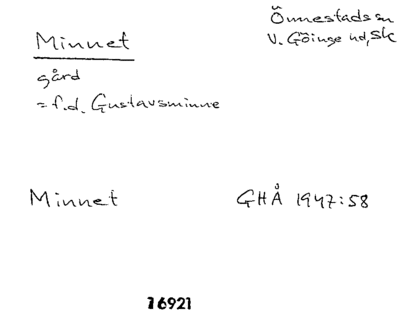 Minnet
gård
= f.d. Gustavsminne
Önnestads sn
V. Göinge hd, Sk
Minnet GHÅ 1947:58
16921